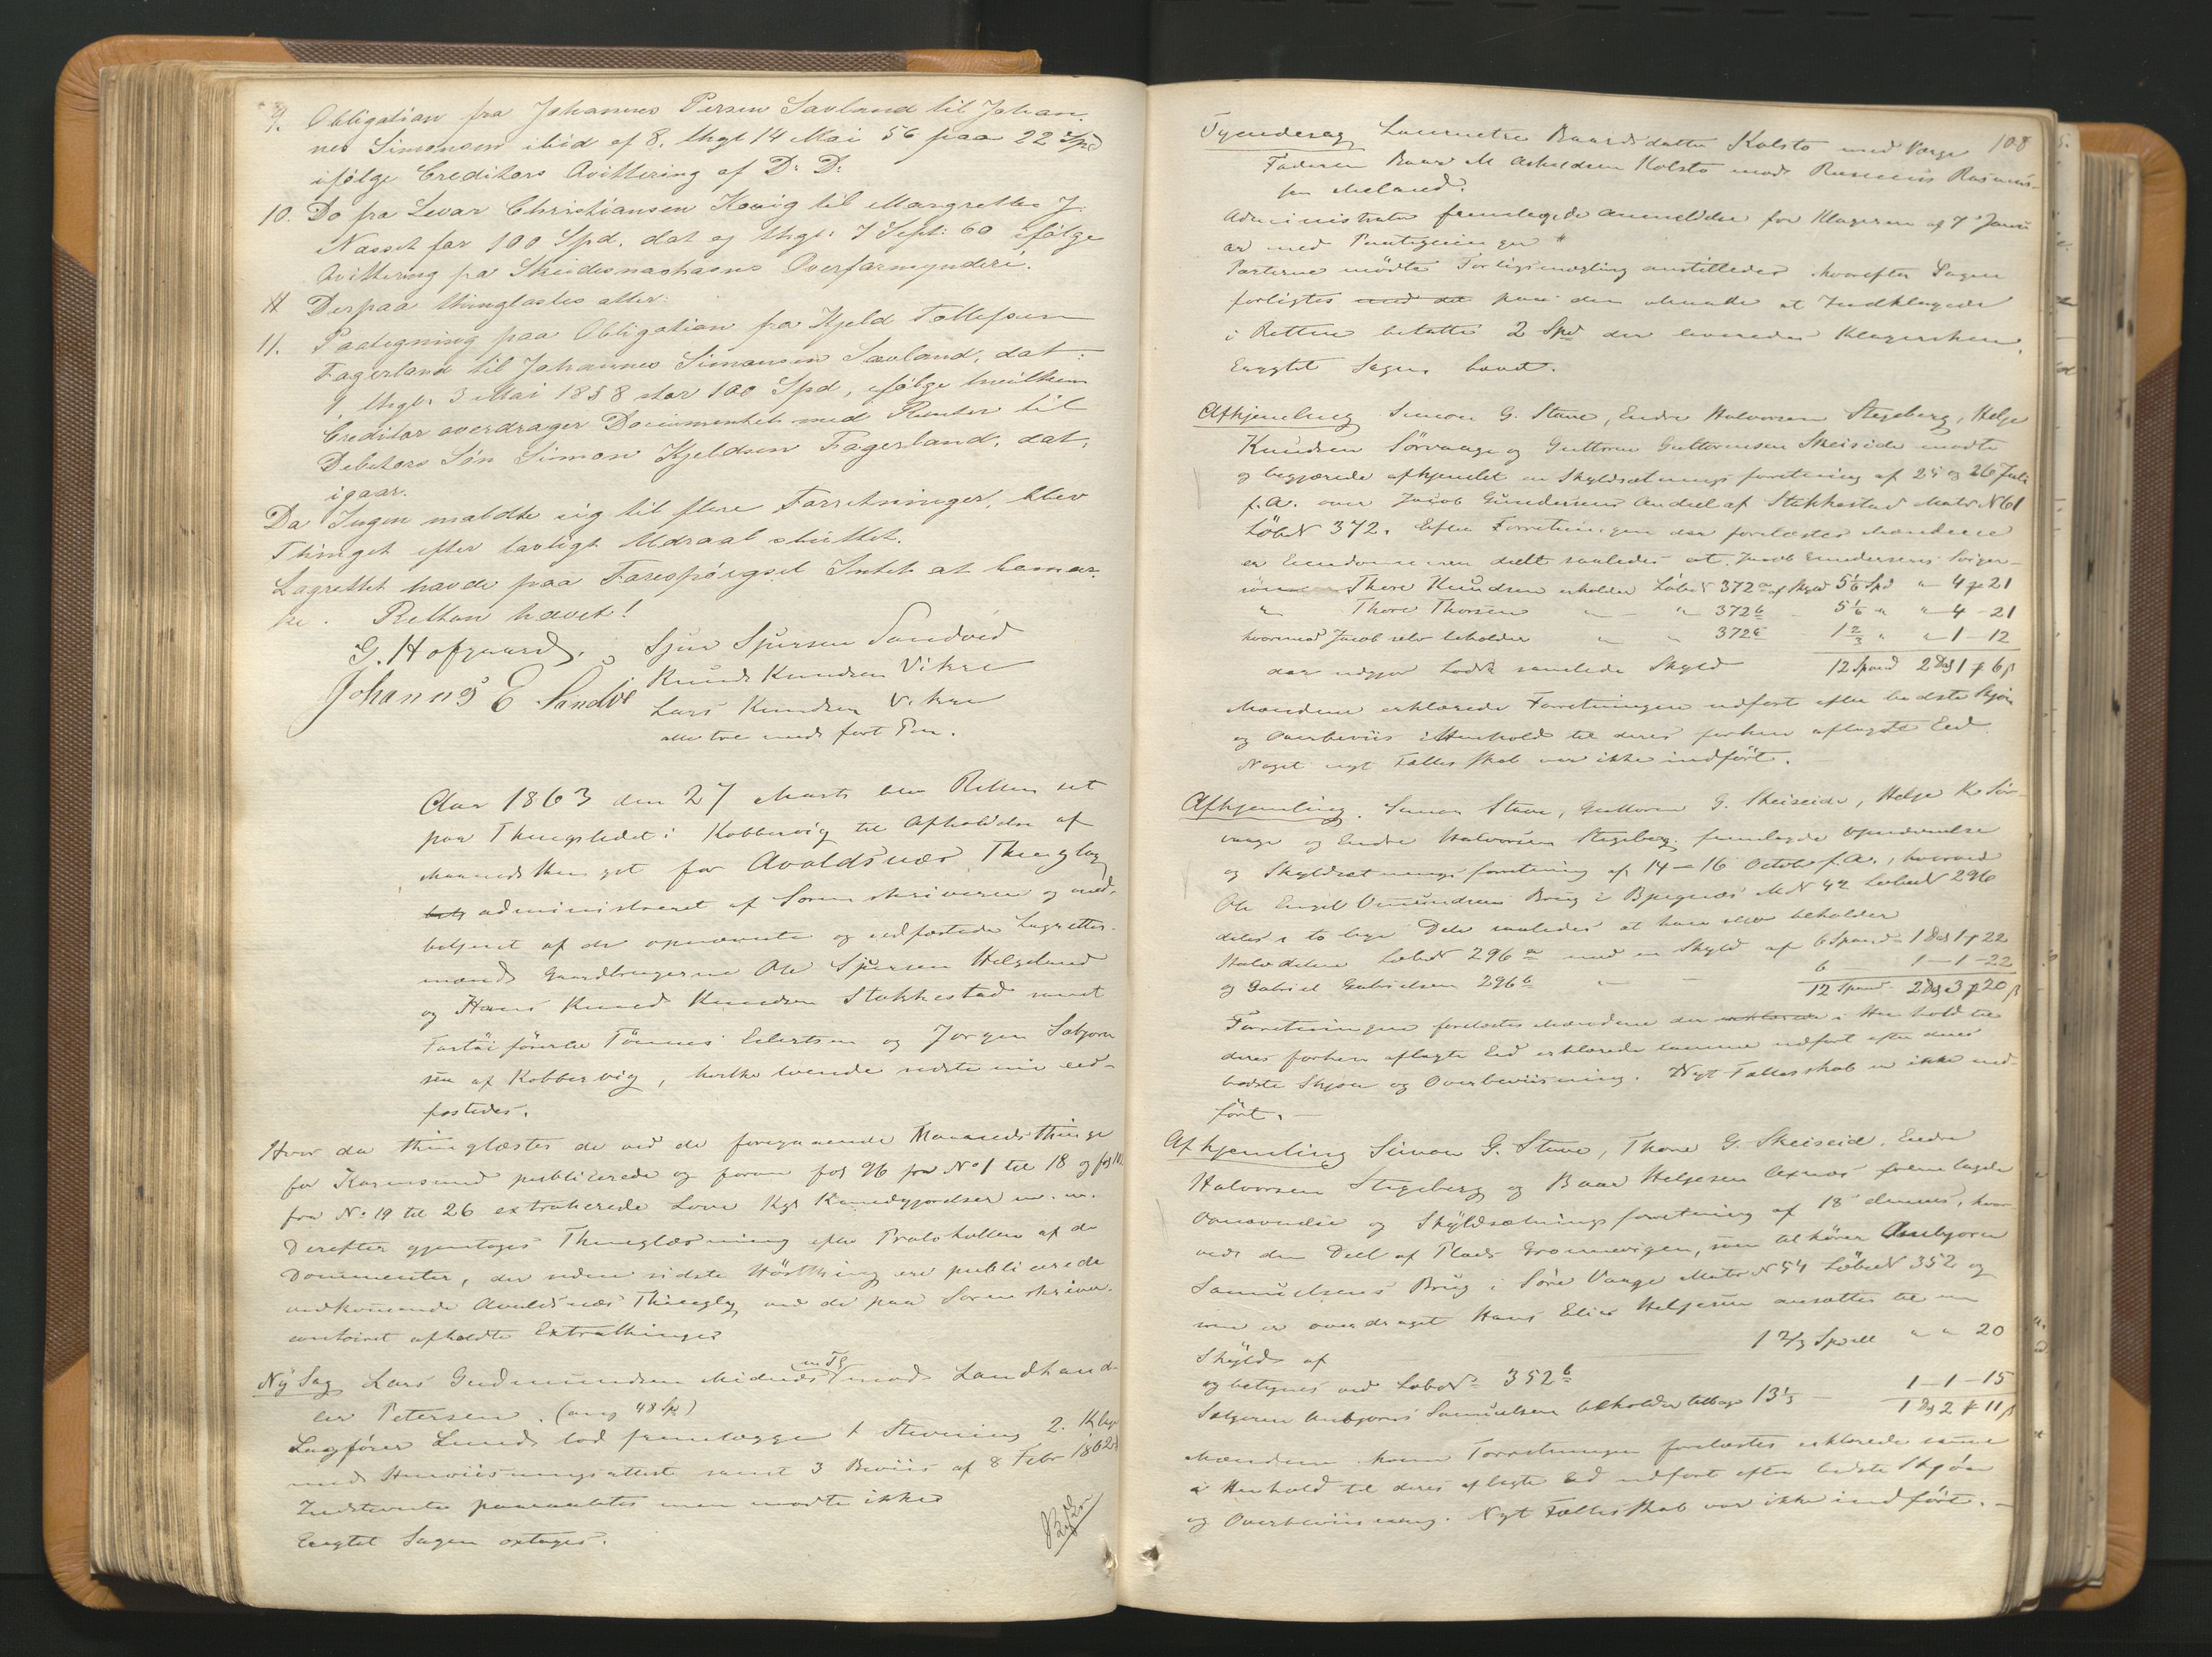 9. Obligation fra Johannes Persen Savland til Johan-
nes Simonsen ibid af 8. thgl 14 Mai 56 paa 22 Spd
ifølge Creditors Qvittering af D: D:
10. Do fra Levar Christiansen Høvig til Margrethe J.
Nasset for 100 Spd. dat og thgl. 7 Sept: 60 ifølge
Qvittering fra Skudesnæshavns Overformynderi.
Derpaa thinglæstes atter:
11. Paategning paa Obligation fra Kjeld Tollefsen
Fagerland til Johannes Simonsen Savland, dat:
1, thgl. 3 Mai 1858 stor 100 Spd, ifølge hvilken
Creditor overdrager Documentet med Renter til
Debitors Søn Simon Kjeldsen Fagerland, dat.
igaar.
Da Ingen meldte sig til flere Forretninger, blev
Thinget efter lovligt Udraab sluttet.
Lagrettet havde paa Forespørgsel Intet at bemær-
ke. Retten hævet!
G. Hofgaard. Sjur Sjursen Sandvid
Johannes E Sandve Knud Knudsen Vikre
Lars Knudsen Vikre
alle tre med ført Pen.
Aar 1863 den 27 Marts blev Retten sat
paa Thingstedet i Kobbervig til Afholdelse af
Maanedsthinget for Avaldsnæs Thinglag
administreret af Sorenskriveren og med-
betjent af de opnævnte og edfæstede Lagrettes-
mænd Gaardbrugerne Ole Sjursen Helgeland
og Hans Knud Knudsen Stokkestad samt
Fartøiførerne Tönnes Eilertsen og Jørgen Sebjørn
sen af Kobbervig, hvilke tvende sidste nu eed-
fæstedes.
Hvor da thinglæstes de ved de foregaaende Maanedsthinge
for Karmsund publicerede og foran fol 96 fra No 1 til 18 og fol 102
fra No 19 til 26 extraherede Love Kgl Kundgjørelser m. m.
Derefter gjentoges Thinglæsning efter Protokollen af de
Dokumenter, der siden sidste Høstthing ere publicerede
vedkommende Avaldsnæs Thinglag ved de paa Sorenskriver-
contoiret afholdte Extrathinge
Ny Sag Lars Gudmundsen Midnæs mod Landhand-
ler Petersen. (ang 48 Sp)
Sagfører Lund lod fremlægge 1 Stevning 2. Klage
med Henviisningsattest samt 3 Beviis af 8 Febr 1862
Indstevnte paaraabtes men mødte ikke
Eragtet Sagen optages.
108
Tyendesag Laurentze Baardsdatter Kolstø med Værge
Faderen Baar M Kolstø mod Rasmus Rasmus-
sen Meland.
Administrator fremlagde anmeldelse fra Klageren af 7 Janu
ar med Paategninger
Parterne mødte Forligsmægling anstilledes hvorefter Sagen
forligtes med det paa den Maade at Indklagede
i Retten betalte 2 Spd der leveredes Klagersken.
Eragtet Sagen hævet.
Afhjemling Simon G. Stave, Endre Halvorsen Stegeberg, Helge
Knudsen Sørvaage og Guttorm Guttormsen Skeiseide mødte
og begjærede afhjemlet en Skyldsætnings forretning af 25 og 26 Juli
f.A. over Jacob Gundersens Andeel af Stokkestad Matr N 61
Löbe N 372. Efter Forretningen der forelæstes Mændene
er Eiendommen deelt saaledes at Jacob Gundersens Sviger-
sön Thore Knudsen erholder Löbe N 372 a af Skyld 5 1/6 Spd " 4 ₰ 21
" Thore Thorsen " " 372 b 5 1/6 " " 4 - 21
hvorimod Jacob selv beholder " " 372 c 1 2/3 " " 1 - 12
der udgjør samlede Skyld 12 Spand 2 Dlr 1 ₰ 6 β
Mændene erklærede Forretningen udført efter bedste Skjøn
og Overbeviis i Henhold til deres forhen aflagte Eed.
Noget nyt Fællesskab var ikke indført.
Afhjemling. Simon Stave, Guttorm G. Skeiseide, Helge K. Sör-
vaage og Endre Halvorsen Stegeberg fremlagde Opnævnelse
og Skyldsætnings forretning af 14 - 16 October f.A., hvorved
Ole Engel Omundsens Brug i Bjugnæs M N 42 Löbe N 296
deles i to lige Dele saaledes at han selv beholder
Halvdelen Löbe N 296 a med en Skyld af 6 Spand 1 Dlr 1 ₰ 22
og Gabriel Gabrielsen 296 b 6 1 - 1 - 22
12 Spand 2 Dlr 3 ₰ 20 β
Forretningen forelæstes Mændene der erklærede i Henhold til
deres forhen aflagte Eed erklærede samme udført efter deres
bedste Skjøn og Overbeviisning. Nyt Fællesskab er ikke ind-
ført.
Afhjemling Simon G. Stave, Thore G. Skeiseid, Endre
Halvorsen Stegeberg og Baar Helgesen fremlagde
Opnævnelse og Skyldsætnings forretning af 18 dennes, hvor
ved den Deel af Plads Grønnevigen, som tilhører Anbjørn
Samuelsens Brug i Søre Vaage Matr N 54 Löbe N 352 og
som er overdraget Hans Elias Helgesen ansattes til en
Skyld af 1 2/3 Spdll " " 20
og betegnes ved Löbe N 352 b
Sælgeren Anbjørn Samuelsen beholder tilbage 13 1/3 1 - 1 - 15
1 Dlr 2 ₰ 11 β
Mændene hvem Forretningen forelæstes erklærede samme
i Henhold til deres aflagte Eed udført efter bedste Skjøn
og Overbeviisning. Nyt Fællesskab var ikke indført.